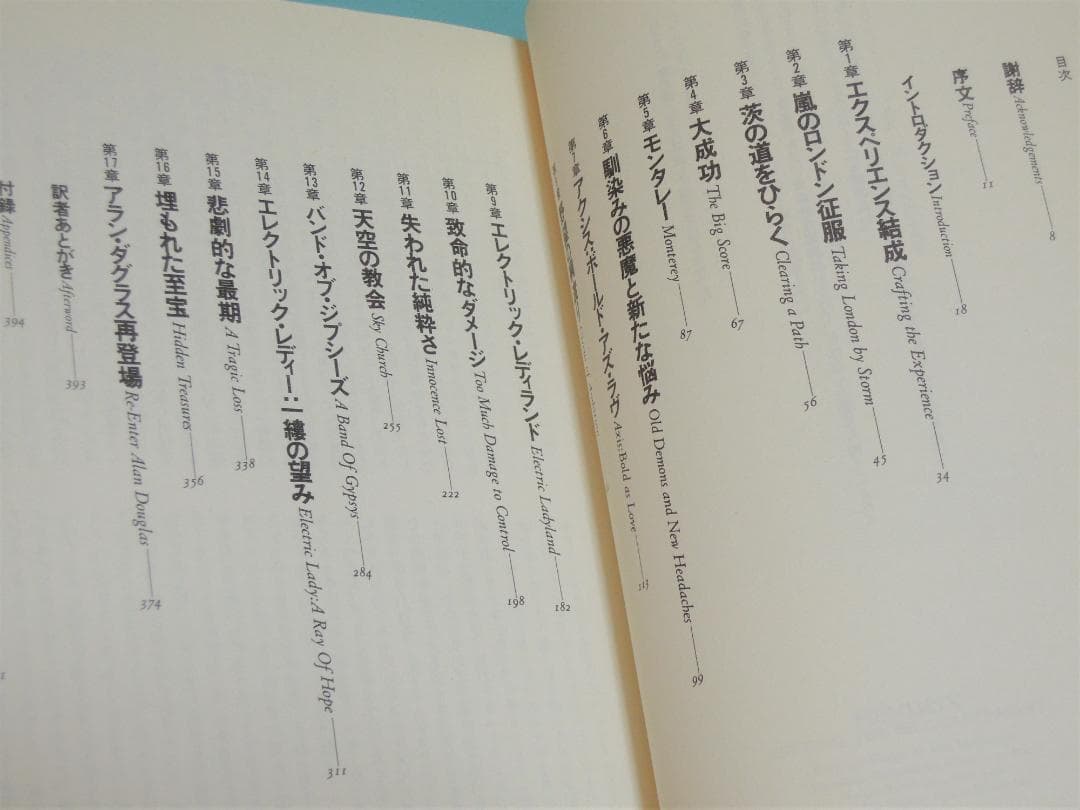 目次
謝辞 Acknowledgements 8
序文 Preface 11
イントロダクション Introduction 18
第1章 エクスペリエンス結成 Crafting the Experience 34
第2章 嵐のロンドン征服 Taking London by Storm 45
第3章 茨の道をひらく Clearing a Path 56
第4章 大成功 The Big Score 67
第5章 モンタレー Monterey 87
第6章 馴染みの悪魔と新たな悩み Old Demons and New Headaches 99
第7章 アクシス:ボールド・アズ・ラヴ Axis:Bold as Love 113
第9章 エレクトリック・レディランド Electric Ladyland 182
第10章 致命的なダメージ Too Much Damage to Control 198
第11章 失われた純粋さ Innocence Lost 222
第12章 天空の教会 Sky Church 255
第13章 バンド・オブ・ジプシーズ A Band Of Gypsys 284
第14章 エレクトリック・レディー:一縷の望み Electric Lady:A Ray Of Hope 311
第15章 悲劇的な最期 A Tragic Loss 338
第16章 埋もれた至宝 Hidden Treasures 356
第17章 アラン・ダグラス再登場 Re-Enter Alan Douglas 374
訳者あとがき Afterword 393
付録 Appendices 394